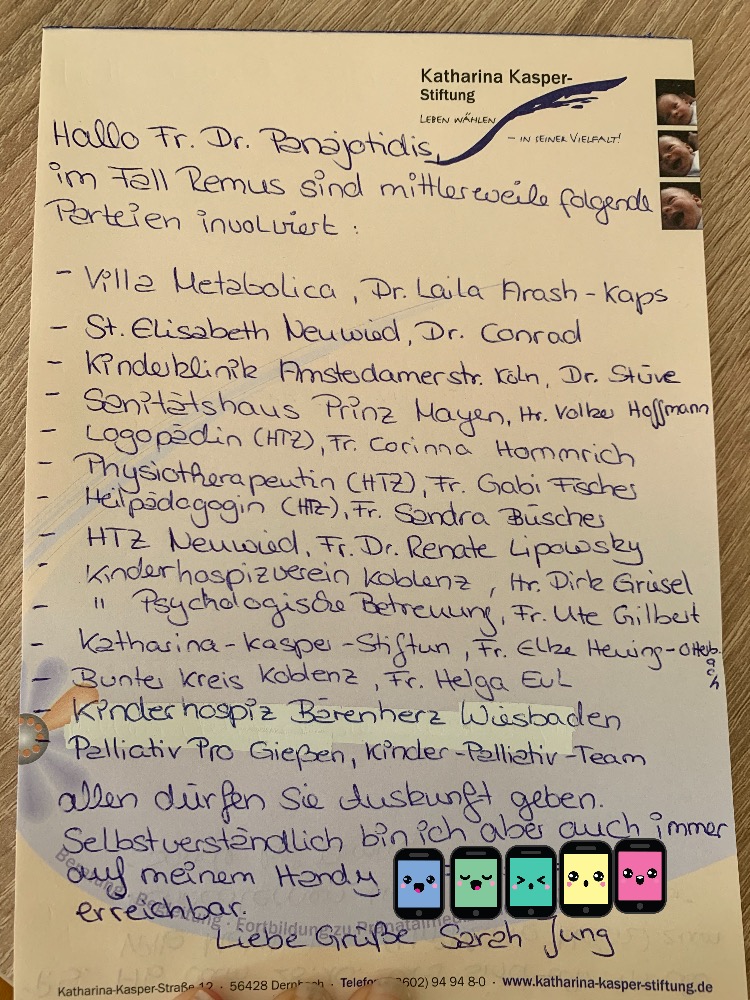 Katharina Kasper-
Stiftung
LEBEN WÄHLEN
– IN SEINER VIELFALT!
Hallo Fr. Dr. Panajotidis,
im Fall Remus sind mittlerweile folgende
Parteien involviert :
- Villa Metabolica, Dr. Laila Arash-Kaps
- St. Elisabeth Neuwied, Dr. Conrad
- Kinderklinik Amsterdamerstr. Köln, Dr. Stüve
- Sanitätshaus Prinz Mayen, Hr. Volker Hoffmann
- Logopädin (HTZ), Fr. Corinna Hommrich
- Physiotherapeutin (HTZ), Fr. Gabi Fischer
- Heilpädagogin (HTZ), Fr. Sandra Büscher
- HTZ Neuwied, Fr. Dr. Renate Lipowsky
- Kinderhospizverein Koblenz, Hr. Dirk Grüsel
- " Psychologische Betreuung, Fr. Ute Gilbert
- Katharina-Kasper-Stiftun, Fr. Elke
- Bunter Kreis Koblenz, Fr. Helga Eul
- Kinderhospiz Bärenherz Wiesbaden
- Palliativ Pro Gießen, Kinder-Palliativ-Team
allen dürfen Sie Auskunft geben.
Selbstverständlich bin ich aber auch immer
auf meinem Handy
erreichbar.
Liebe Grüße Sarah Jung
Fortbildung zu
Katharina-Kasper-Straße 12 · 56428 Dernbach · Telefon 02602) 94 94 8-0 · www.katharina-kasper-stiftung.de